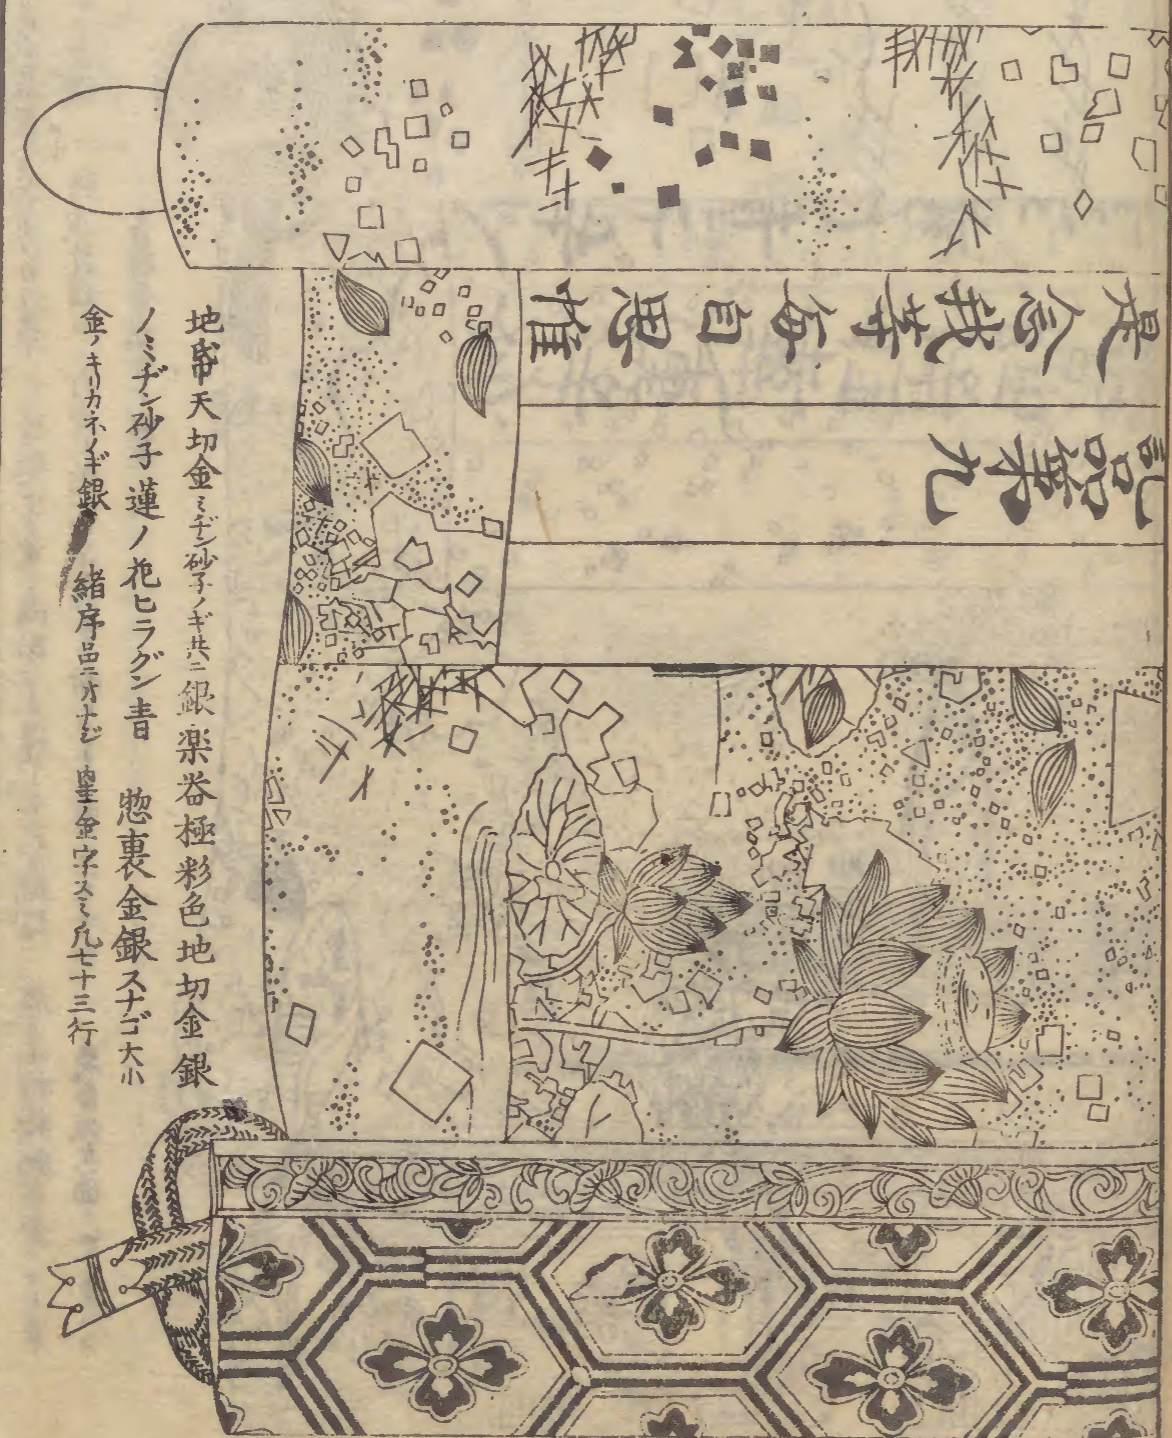 是念我等每自思惟
記品第九
地帋天切金ミヂン砂子ノギ共ニ銀楽器極彩色地切金銀
ノミヂン砂子蓮ノ花ヒラグン青　惣裏金銀スナゴ大小
金ノキリカネノギ銀　緒序品ニオナジ　金字スミ凡七十三行